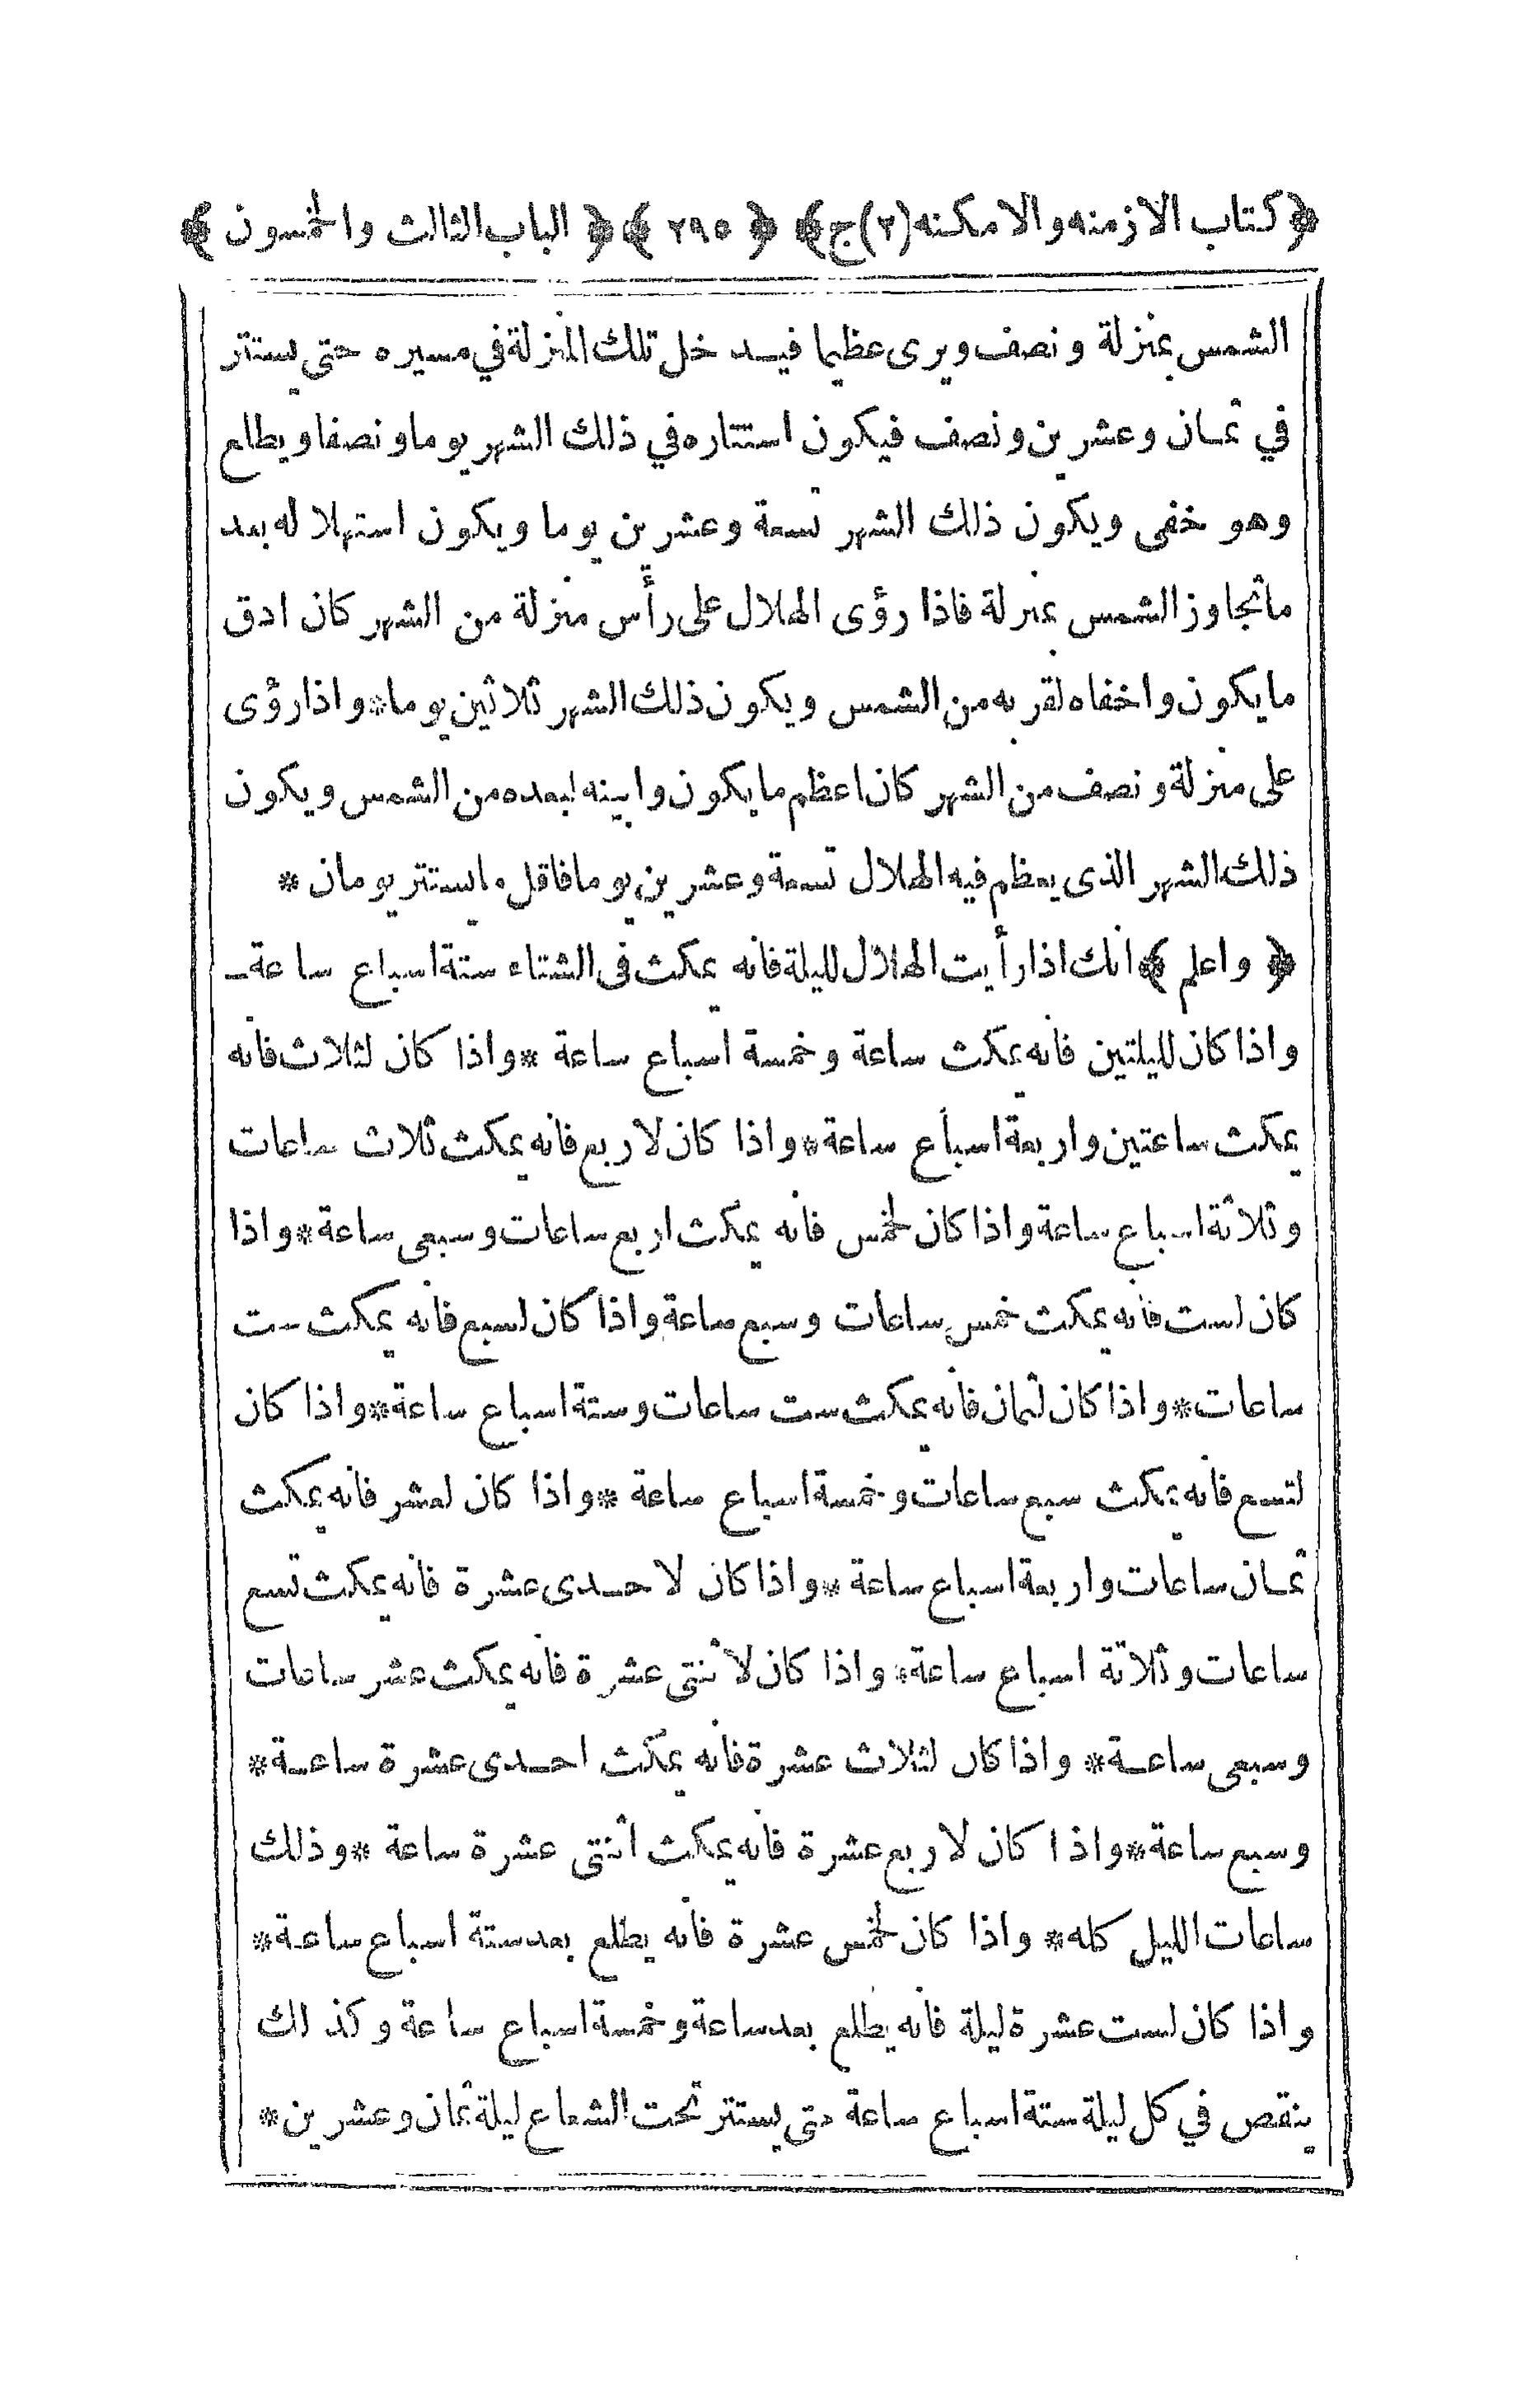 ﴿كتاب الازمنه والامكنه (٢) ج﴾ ﴿ ٢٩٥ ﴾ ﴿ الباب الثالث والخمسون ﴾
الشمس بمنزلة ونصف ويرى عظيما فيدخل تلك المنزلة في مسيره حتى يستتر
في ثمان وعشرين ونصف فيكون استتاره في ذلك الشهر يوما ونصفا ويطلع
وهو خفى ويكون ذلك الشهر تسعة وعشرين يوما ويكون استهلاله بعد
ماتجاوز الشمس بمنزلة فاذا رؤى الهلال على رأس منزلة من الشهر كان ادق
مايكون واخفاه لقربه من الشمس ويكون ذلك الشهر ثلاثين يوما* واذا رؤى
على منزلة ونصف من الشهر كان اعظم مايكون وابينه لبعده من الشمس ويكون
ذلك الشهر الذى يعظم فيه الهلال تسعة وعشرين يوما فاقل مايستتر يومان *
﴿ واعلم ﴾ انك اذا رأيت الهلال لليلة فانه يمكث فى الشتاء ستة اسباع ساعة
واذا كان لليلتين فانه يمكث ساعة وخمسة اسباع ساعة *واذا كان لثلاث فانه
يمكث ساعتين واربعة اسباع ساعة* واذا كان لاربع فانه يمكث ثلاث ساعات
وثلاثة اسباع ساعة واذا كان لخمس فانه يمكث اربع ساعات وسبعى ساعة* واذا
كان لست فانه يمكث خمس ساعات وسبع ساعة واذا كان لسبع فانه يمكث ست
ساعات* واذا كان لثمان فانه يمكث ست ساعات وستة اسباع ساعة* واذا كان
لتسع فانه يمكث سبع ساعات وخمسة اسباع ساعة *واذا كان لعشر فانه يمكث
ثمان ساعات واربعة اسباع ساعة * واذا كان لاحدى عشرة فانه يمكث تسع
ساعات وثلاثة اسباع ساعة* واذا كان لاثنتى عشرة فانه يمكث عشر ساعات
وسبعى ساعة* واذا كان لثلاث عشرة فانه يمكث احدى عشرة ساعة*
وسبع ساعة* واذا كان لاربع عشرة فانه يمكث اثنتى عشرة ساعة *وذلك
ساعات الليل كله* واذا كان لخمس عشرة فانه يطلع بعد ستة اسباع ساعة*
واذا كان لست عشرة ليلة فانه يطلع بعد ساعة وخمسة اسباع ساعة وكذلك
ينقص في كل ليلة ستة اسباع ساعة حتى يستتر تحت الشعاع ليلة ثمان وعشرين*